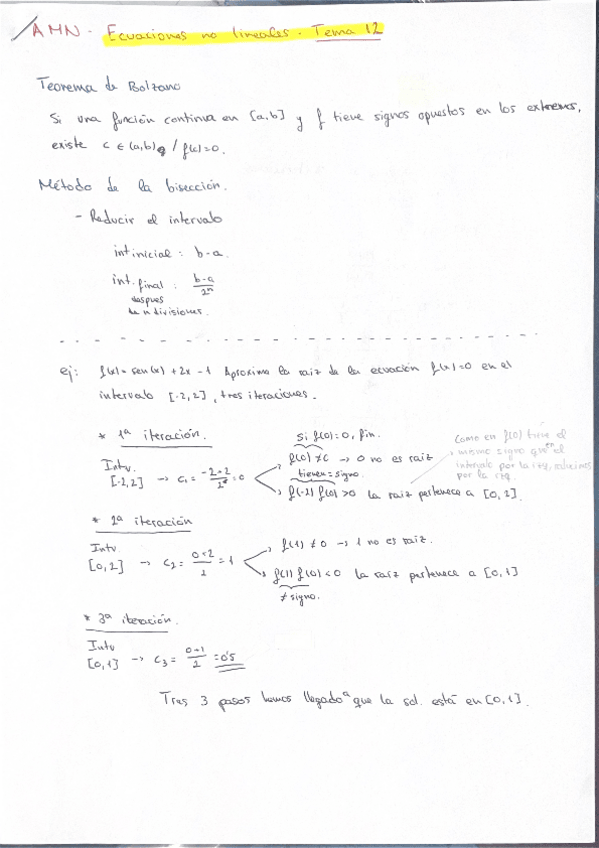 AMN - Ecuaciones no lineales - Tema 12
Teorema de Bolzano
Si una función continua en [a,b] y f tiene signos opuestos en los extremos,
existe c ∈ (a,b) / f(c)=0.
Método de la bisección.
- Reducir el intervalo
int inicial : b-a.
int. final : b-a / 2ⁿ
despues
de n divisiones.
ej: f(x)= sen(x) + 2x - 1 Aproxima la raiz de la ecuación f(x)=0 en el
intervalo [-2,2], tres iteraciones.
* 1ª iteración.
Si f(0)=0, fin.
Como en f(0) tiene el
mismo signo que en el
intervalo por la izq,
por la izq.
Intv.
[-2,2] → c₁ = -2+2 / 2 = 0
f(0) ≠ 0 → 0 no es raiz
tienen = signo.
f(-2) f(0) >0 la raiz pertenece a [0,2].
* 2ª iteración
Intv
[0,2] → c₂ = 0+2 / 2 = 1
f(1) ≠ 0 → 1 no es raiz.
f(1) f(0) <0 la raiz pertenece a [0,1]
≠ signo.
* 3ª iteración.
Intv
[0,1] → c₃ = 0+1 / 2 = 0'5
Tras 3 pasos hemos llegado a que la sol. está en [0,1].